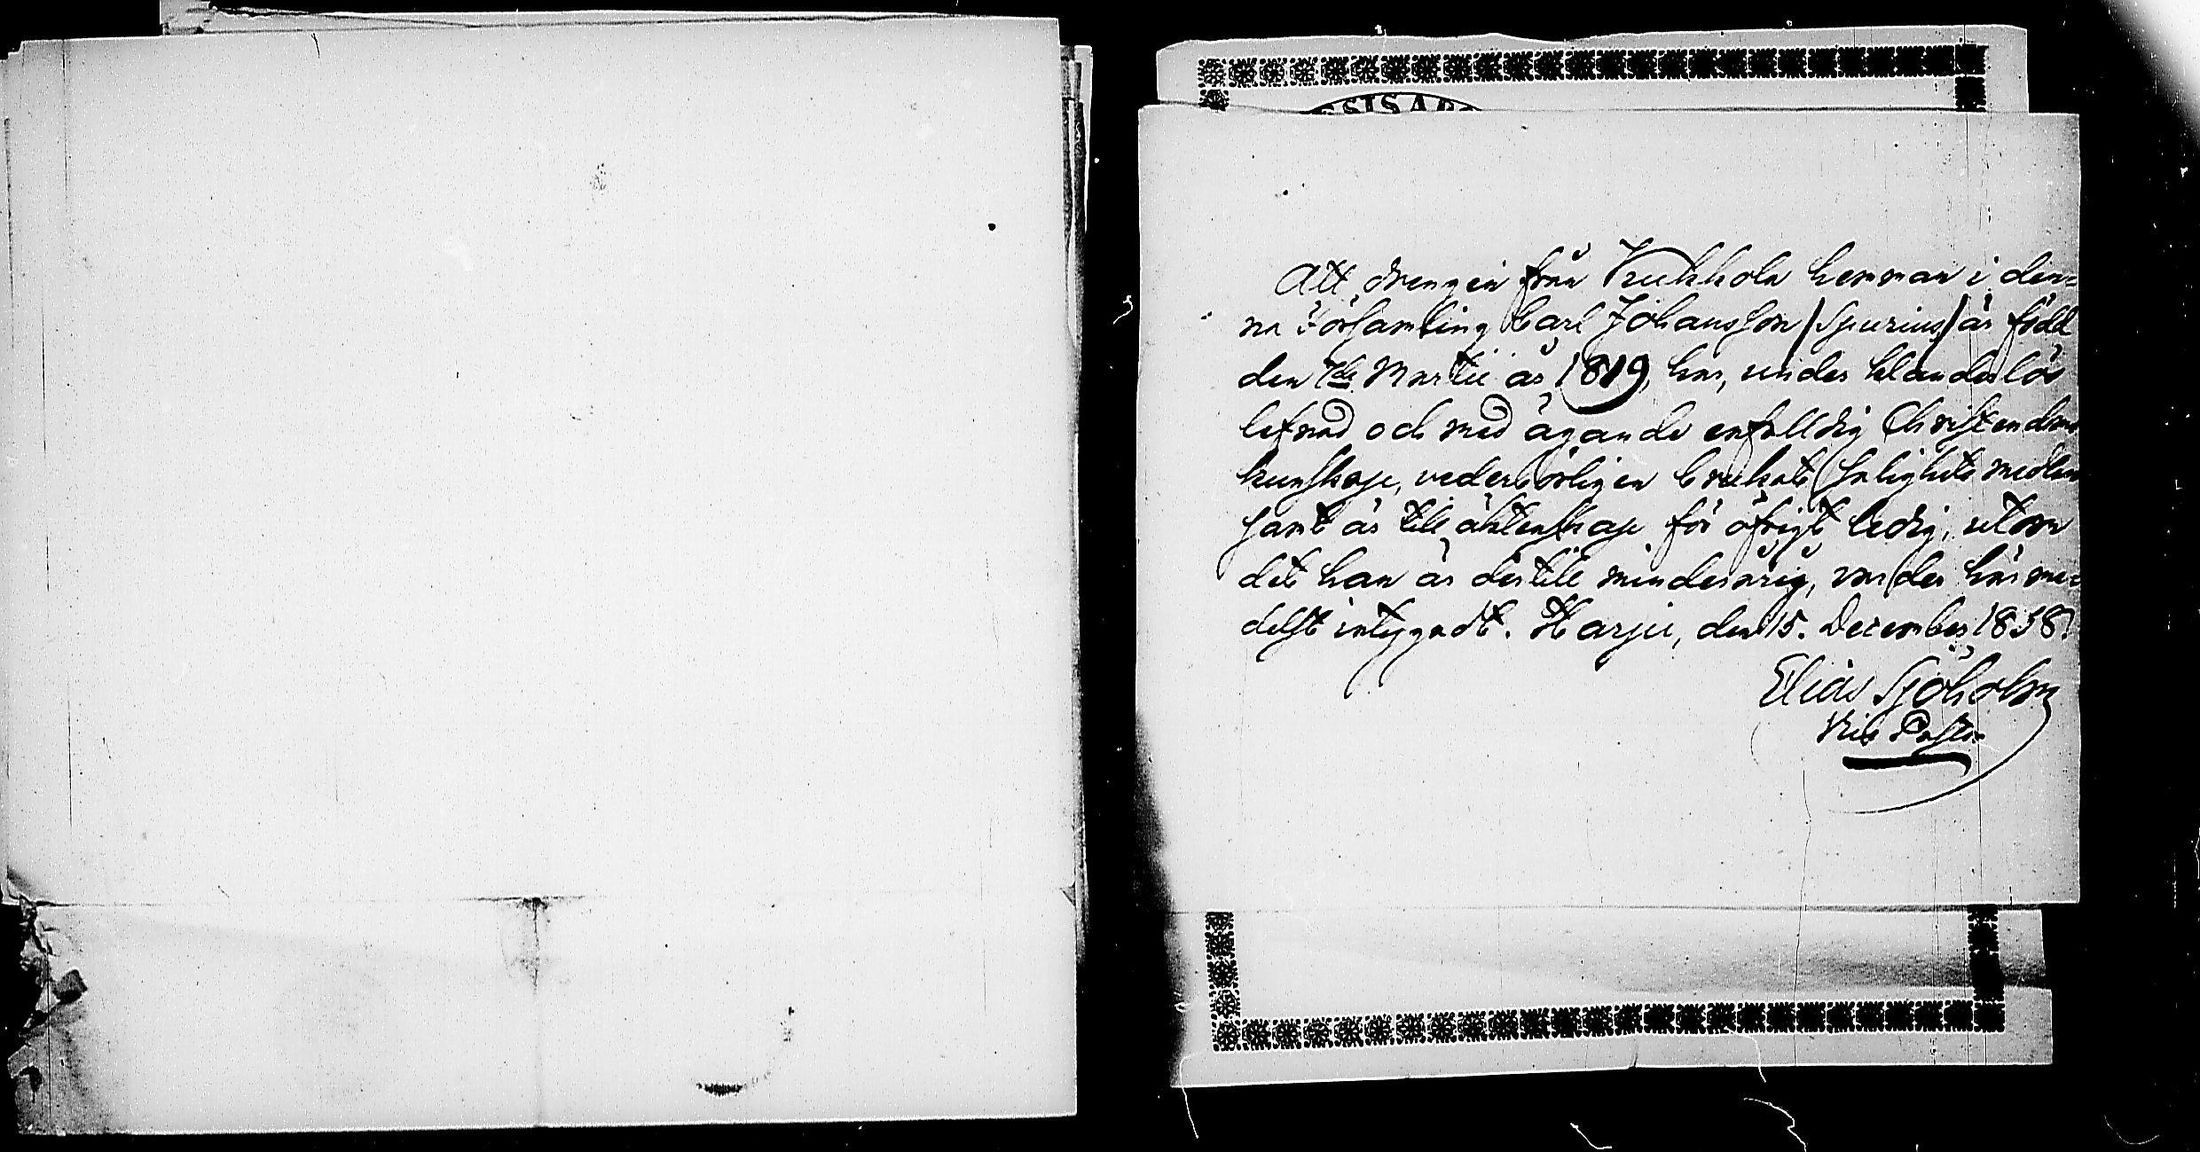 SSIS AR
Att drengen från Kukkola hemman i den=
na Församling Carl Johansson /Spurius/ är född
den 7de Martii år 1819, har, under klanderlös
lefnad och med ägande enfalldig Christendoms
kunskap, vederbörligen brukat salighets medlen
samt är till äktenskap för öfrigt ledig, utom
det han är dertill minderårig, varder härme=
delst intygadt. Harju, den 15. December 1838.
Elias Sjöholm
Vice Pastor